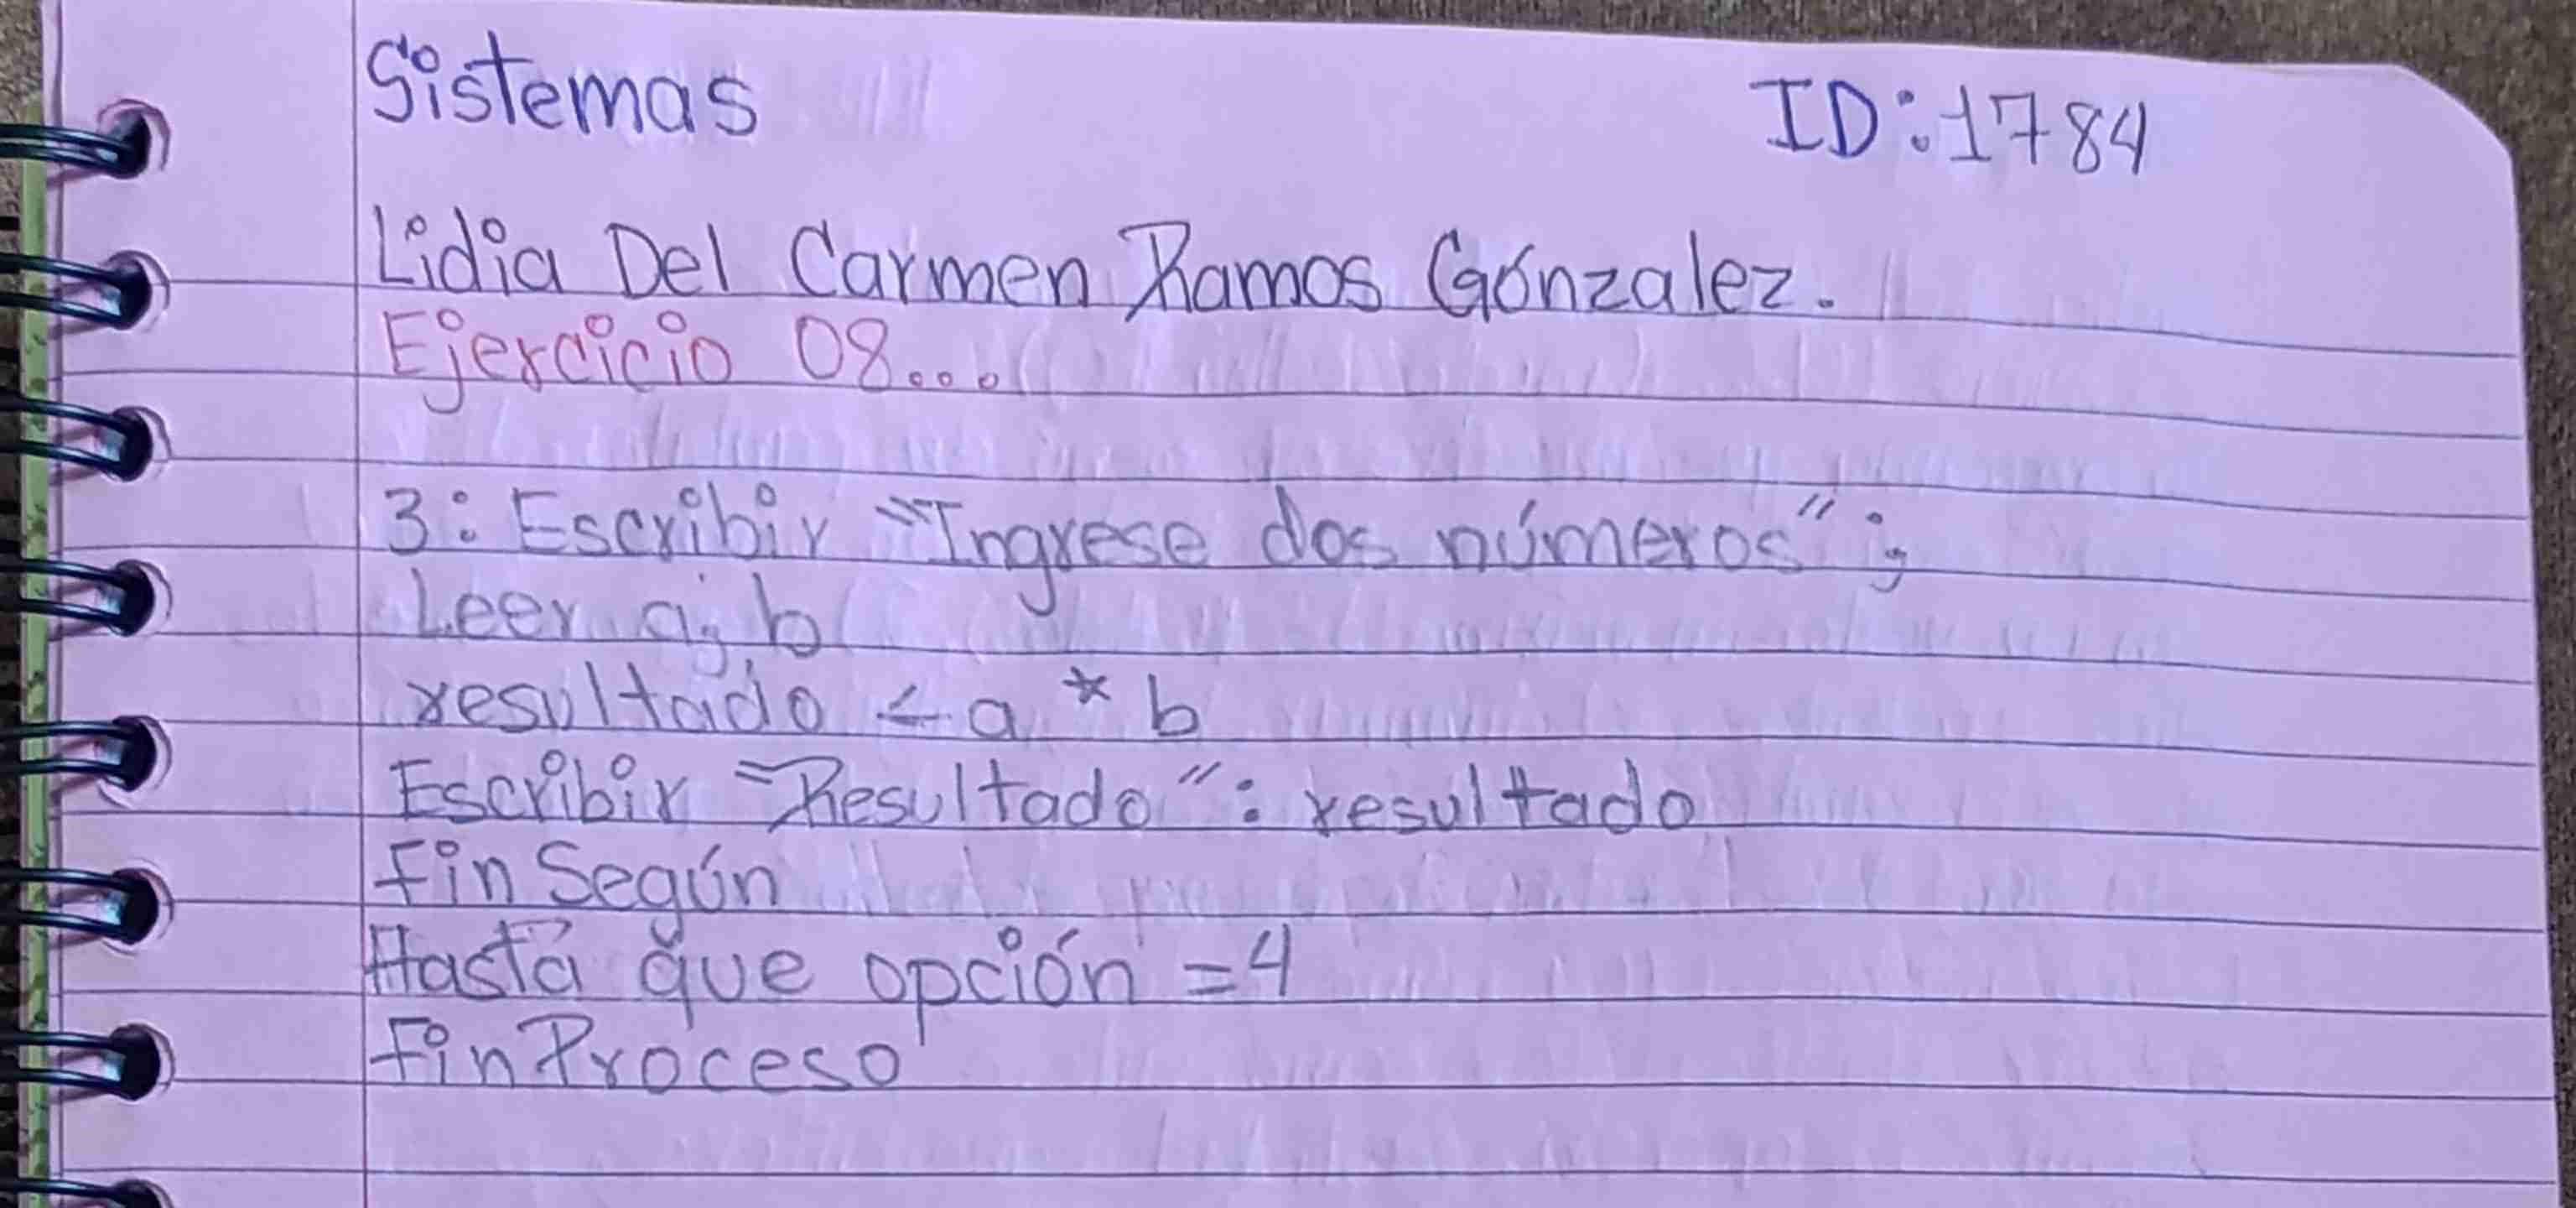 Sistemas ID:1784
Lidia Del Carmen Ramos Gónzalez.
Ejercicio 08...
3: Escribir "Ingrese dos números";
Leer a; b
resultado ← a * b
Escribir "Resultado": resultado
Fin Según
Hasta que opción = 4
Fin Proceso